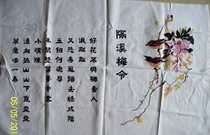 隔溪梅令
好花不與殢香人
浪粼粼
又恐春風歸去綠成陰
玉鈿何處尋
木蘭雙槳夢中雲
小橫陳
漫向孤山山下覓盈盈
翠禽啼一春